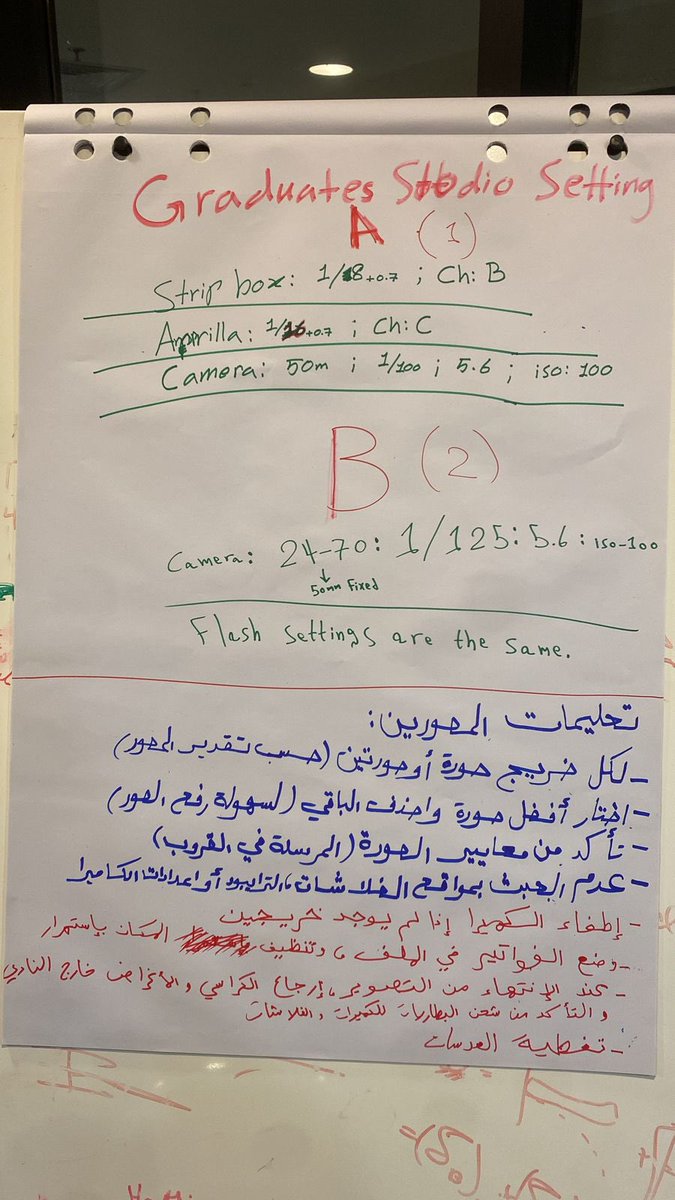 Graduates Studio Setting
A (1)
Strip box: 1/8 +0.7 ; Ch: B
Amprilla: 1/16 +0.7 ; Ch: C
Camera: 50m ; 1/100 ; 5.6 ; iso: 100
B (2)
Camera: 24-70: 1/125: 5.6: ISO-100
50mm Fixed
Flash settings are the same.
تعليمات المصورين:
- لكل خريج صورة أو صورتين (حسب تقدير المصور)
- اختار أفضل صورة واحذف الباقي (لسهولة رفع الصور)
- تأكد من معايير الصورة (المرسلة في القروب)
- عدم العبث بمواقع الفلاشات، الترايبود أو اعدادات الكاميرا
- إطفاء الكميرا إذا لم يوجد خريجين
- وضع الفواتير في الملف، وتنظيف المكان بإستمرار
- عند الإنتهاء من التصوير، إرجاع الكراسي والأغراض خارج النادي
والتأكد من شحن البطاريات للكميرات والفلاشات
- تغطية العدسات